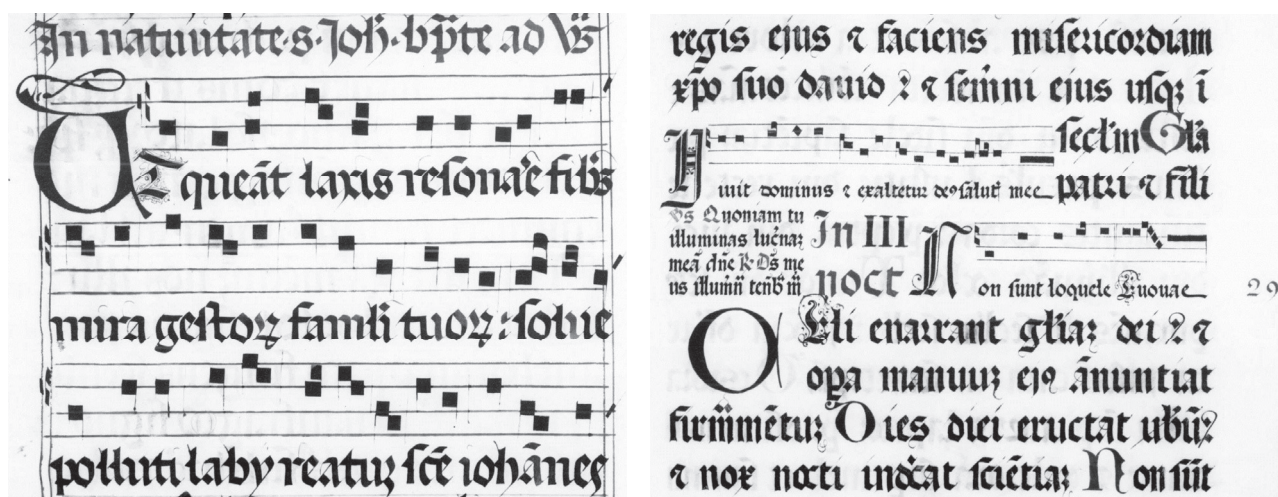 In natiuitate·s·Joh̄·bp̄te ad Vs̄
UT queāt laxis resonar̄e fibrꝭ
mira gestoꝝ famuli tuoꝝ: solue
polluti laby reatuꝫ sc̄e iohānes
regis eius ⁊ faciens misericordiam
xp̄o suo dauid ? ⁊ semīni eius usqꝫ ī
sec̄l'm Gl̄a
Viuit dominus ⁊ exaltetur de⁹ salut' mee patri ⁊ fili
Ps Quoniam tu
illuminas luc̄naꝫ
meā dn̄e R Ds̄ me
us illumī tenb̄ m̄
In III
noct
Non sunt loquele Euouae
29
Celi enarrant gl̄iaꝫ dei ? ⁊
opa manuuꝫ ei⁹ ānuntiat
firm̄mētuꝫ Dies diei eructat ubū?
⁊ nox nocti indc̄at sciētiaꝫ Non sūt